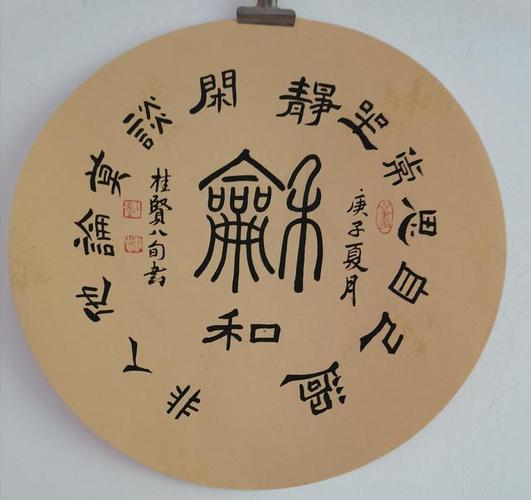 靜坐常思自己過
閑談莫論他人非
龢
和
庚子夏月
桂賢八旬书